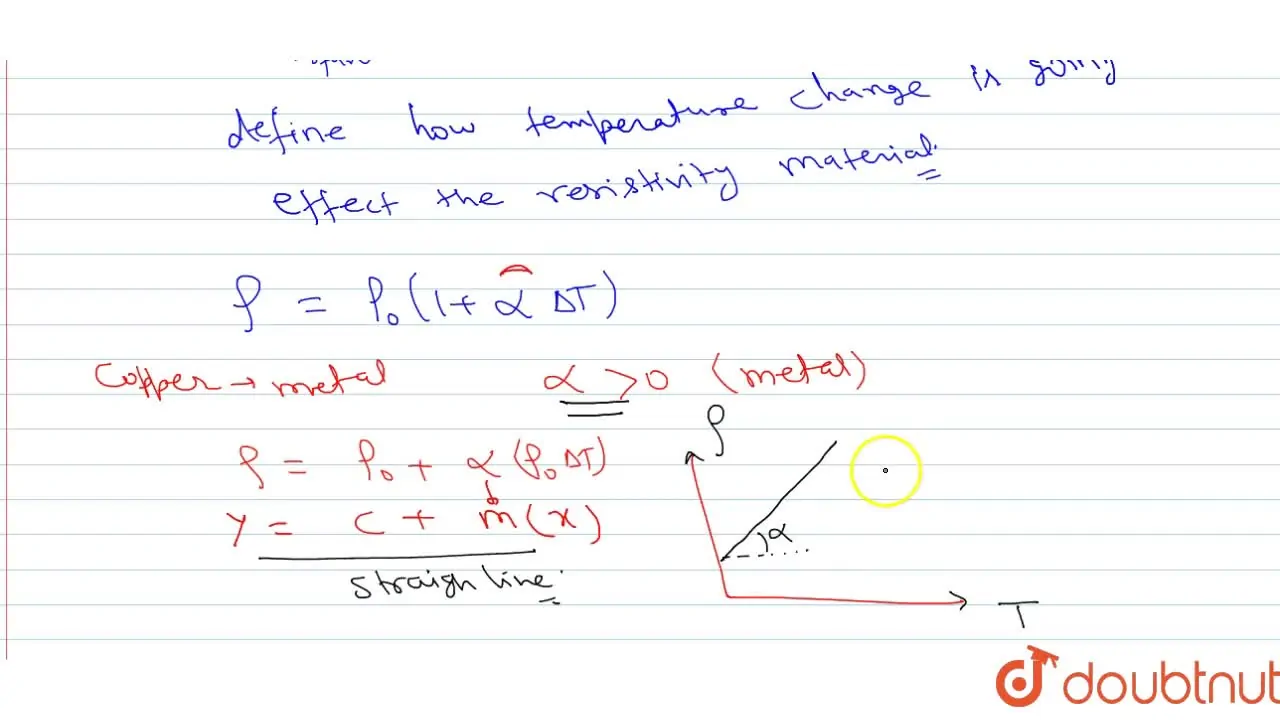 define how temperature change is going
effect the resistivity material.
ρ = ρ₀ (1 + α ΔT)
Copper → metal α > 0 (metal)
ρ
ρ = ρ₀ + α (ρ₀ ΔT)
y = c + m (x)
α
straigh line.
T
doubtnut